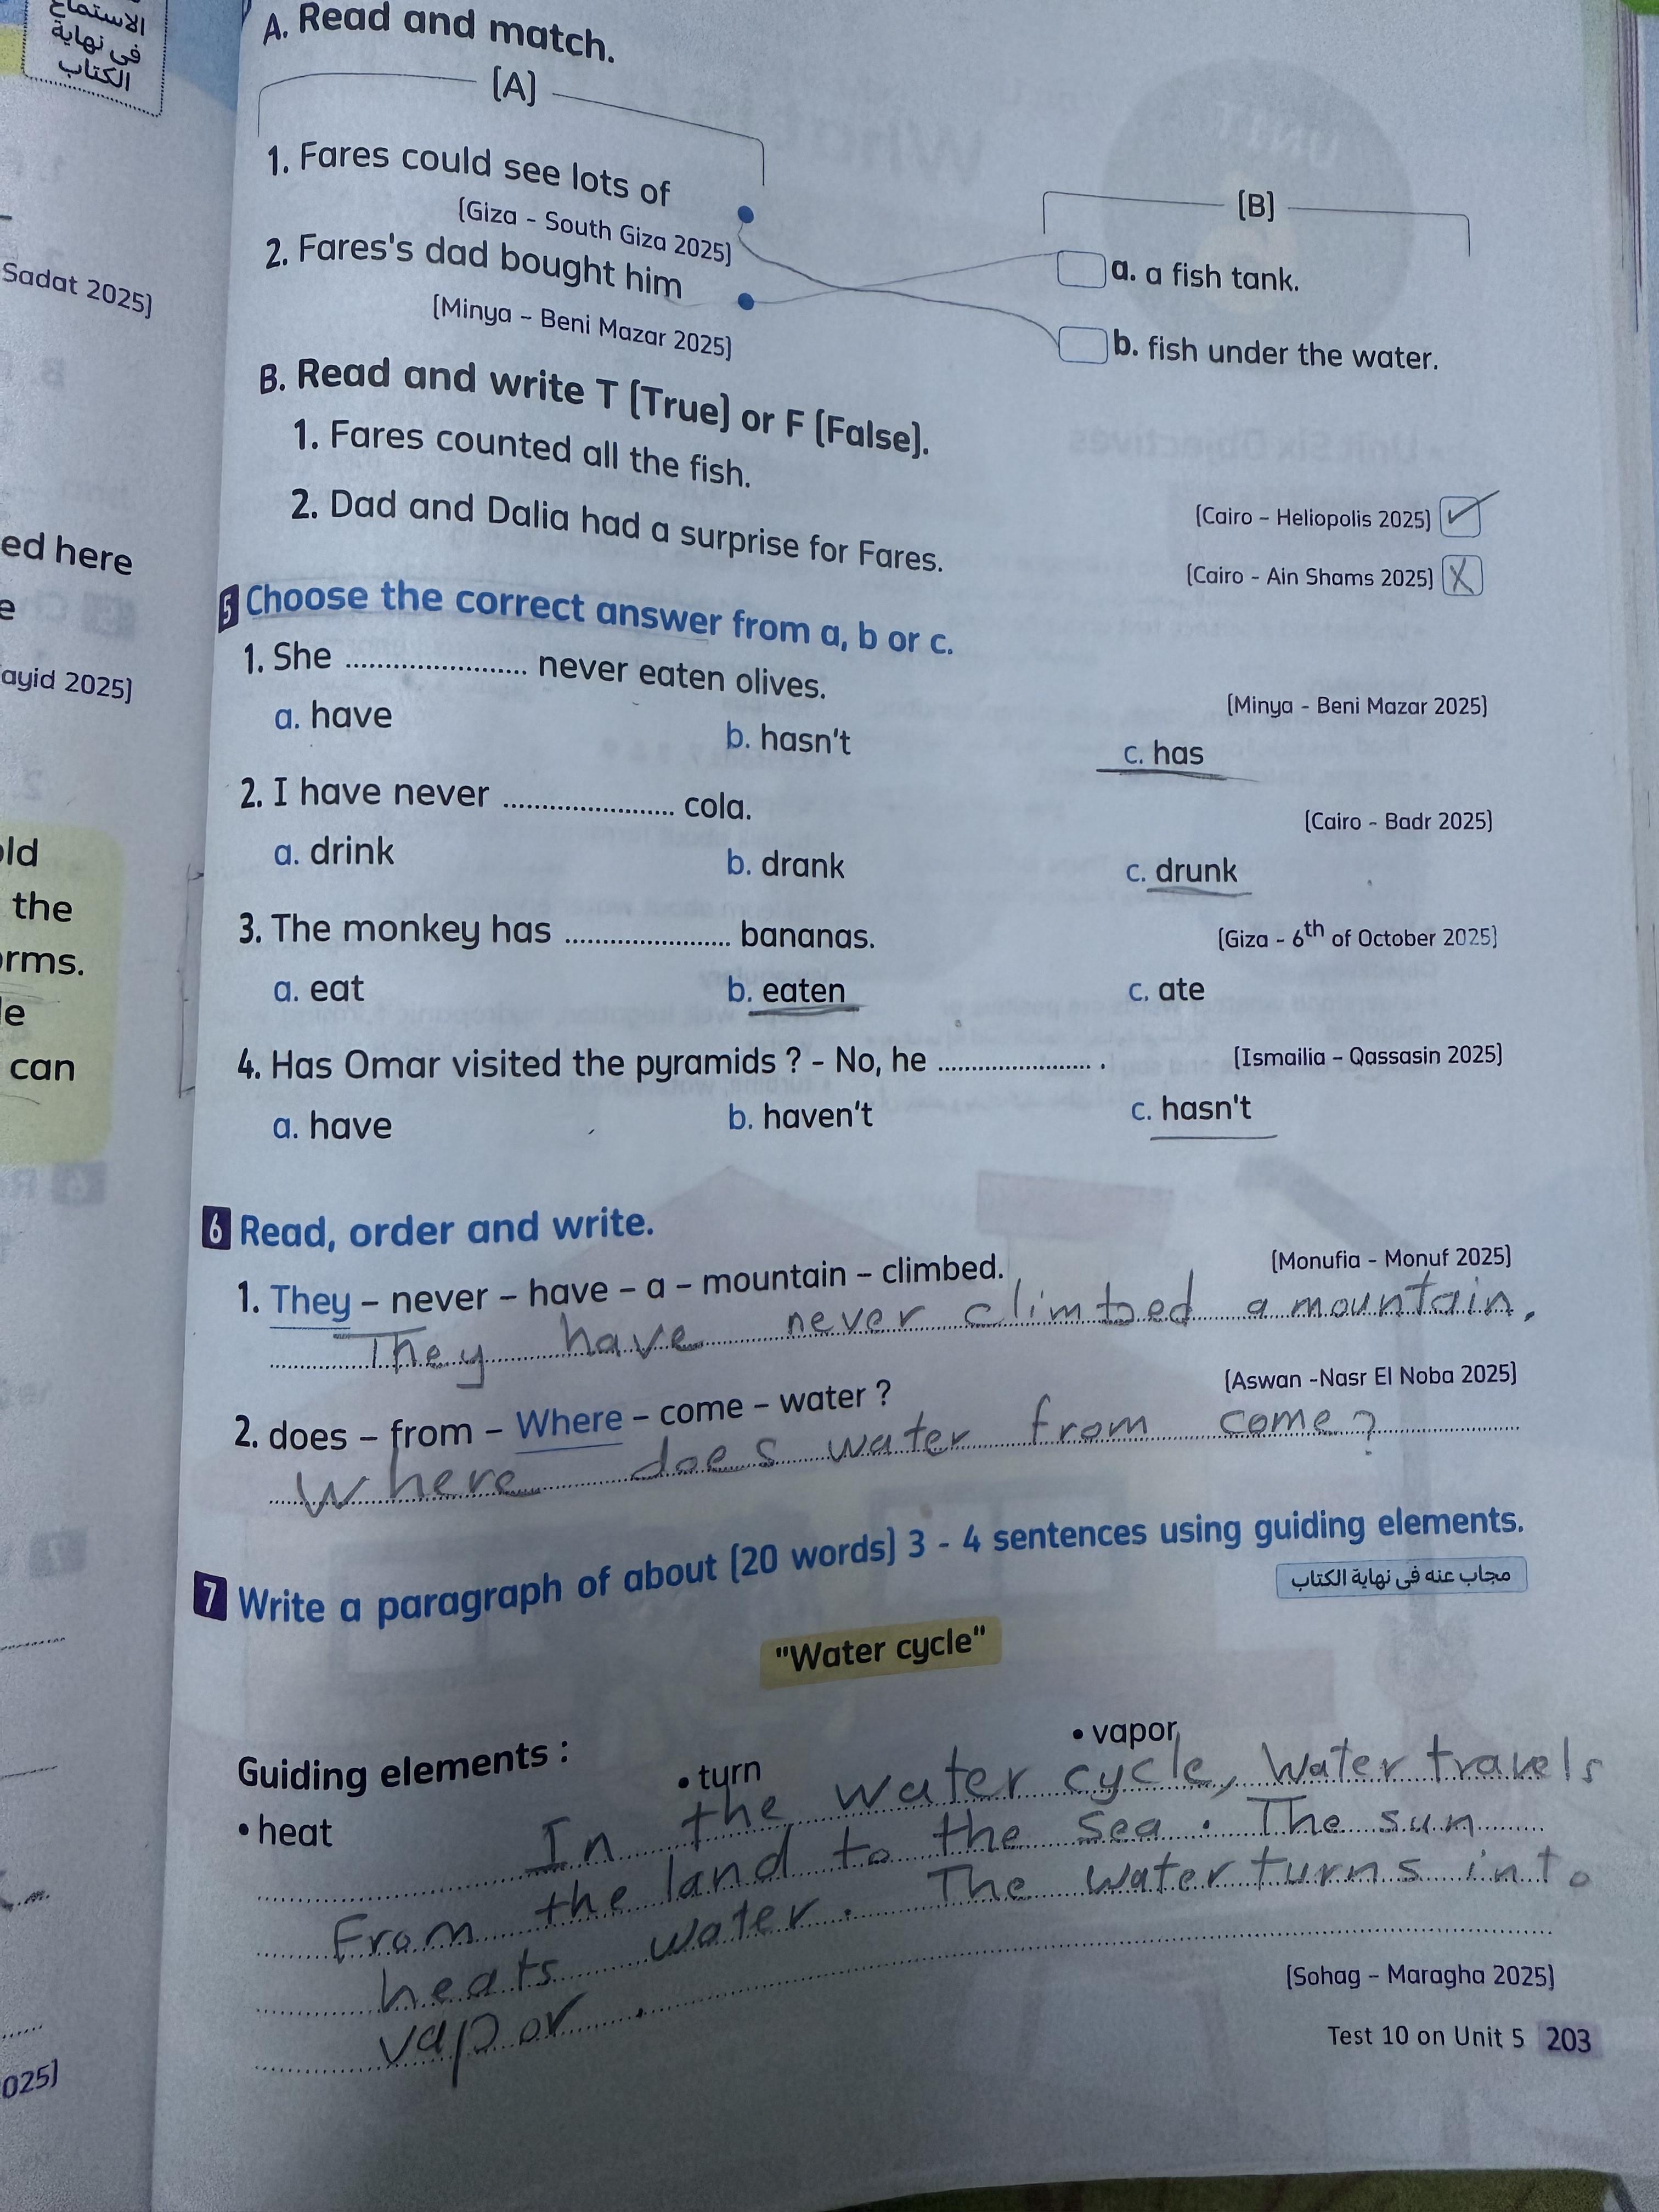 الاستماع
فى نهاية
الكتاب
Sadat 2025]
ed here
e
ayid 2025]
old
the
orms.
le
can
025]
A. Read and match.
[A]
1. Fares could see lots of
[Giza - South Giza 2025]
2. Fares's dad bought him
[Minya - Beni Mazar 2025]
[B]
a. a fish tank.
b. fish under the water.
B. Read and write T [True] or F [False].
1. Fares counted all the fish.
[Cairo - Heliopolis 2025] ✓
2. Dad and Dalia had a surprise for Fares.
[Cairo - Ain Shams 2025] X
5 Choose the correct answer from a, b or c.
1. She ........................ never eaten olives.
[Minya - Beni Mazar 2025]
a. have b. hasn't c. has
2. I have never ........................ cola.
[Cairo - Badr 2025]
a. drink b. drank c. drunk
3. The monkey has ........................ bananas.
[Giza - 6th of October 2025]
a. eat b. eaten c. ate
4. Has Omar visited the pyramids ? - No, he ........................ .
[Ismailia - Qassasin 2025]
a. have b. haven't c. hasn't
6 Read, order and write.
1. They – never – have – a – mountain – climbed.
[Monufia - Monuf 2025]
They have never climbed a mountain.
2. does – from – Where – come – water ?
[Aswan -Nasr El Noba 2025]
Where does water from come?
7 Write a paragraph of about [20 words] 3 - 4 sentences using guiding elements.
مجاب عنه فى نهاية الكتاب
"Water cycle"
Guiding elements :
• heat • turn • vapor
In the water cycle, Water travels
From the land to the sea. The sun
heats water. The water turns into
vapor.
[Sohag - Maragha 2025]
Test 10 on Unit 5 203